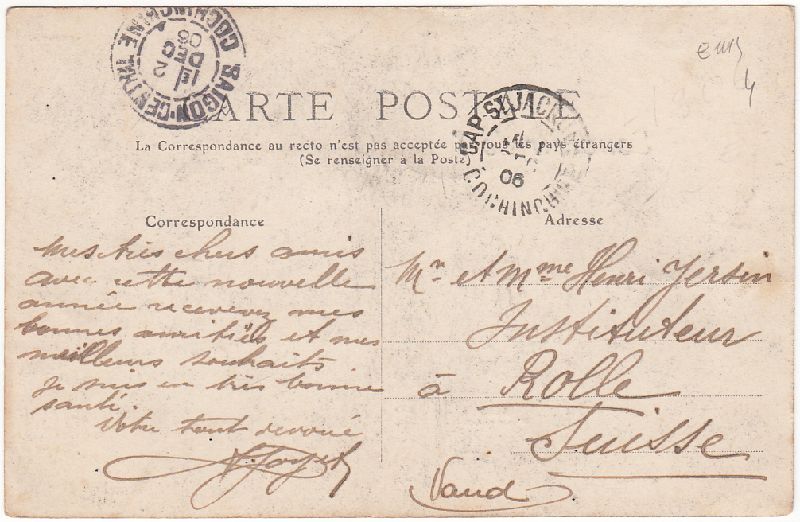 SAIGON-CENTRAL
2
DEC
06
COCHINCHINE
CARTE POSTALE
CAP ST JACQUES
06
COCHINCHINE
La Correspondance au recto n'est pas acceptée par tous les pays étrangers
(Se renseigner à la Poste)
Correspondance
Mes très chers amis
avec cette nouvelle
année recevez mes
bonnes amitiés et mes
meilleurs souhaits
je suis en très bonne
santé.
Votre tout dévoué
Adresse
Mr et Mme Henri Yersin
Instituteur
à Rolle
Suisse
(Vaud)